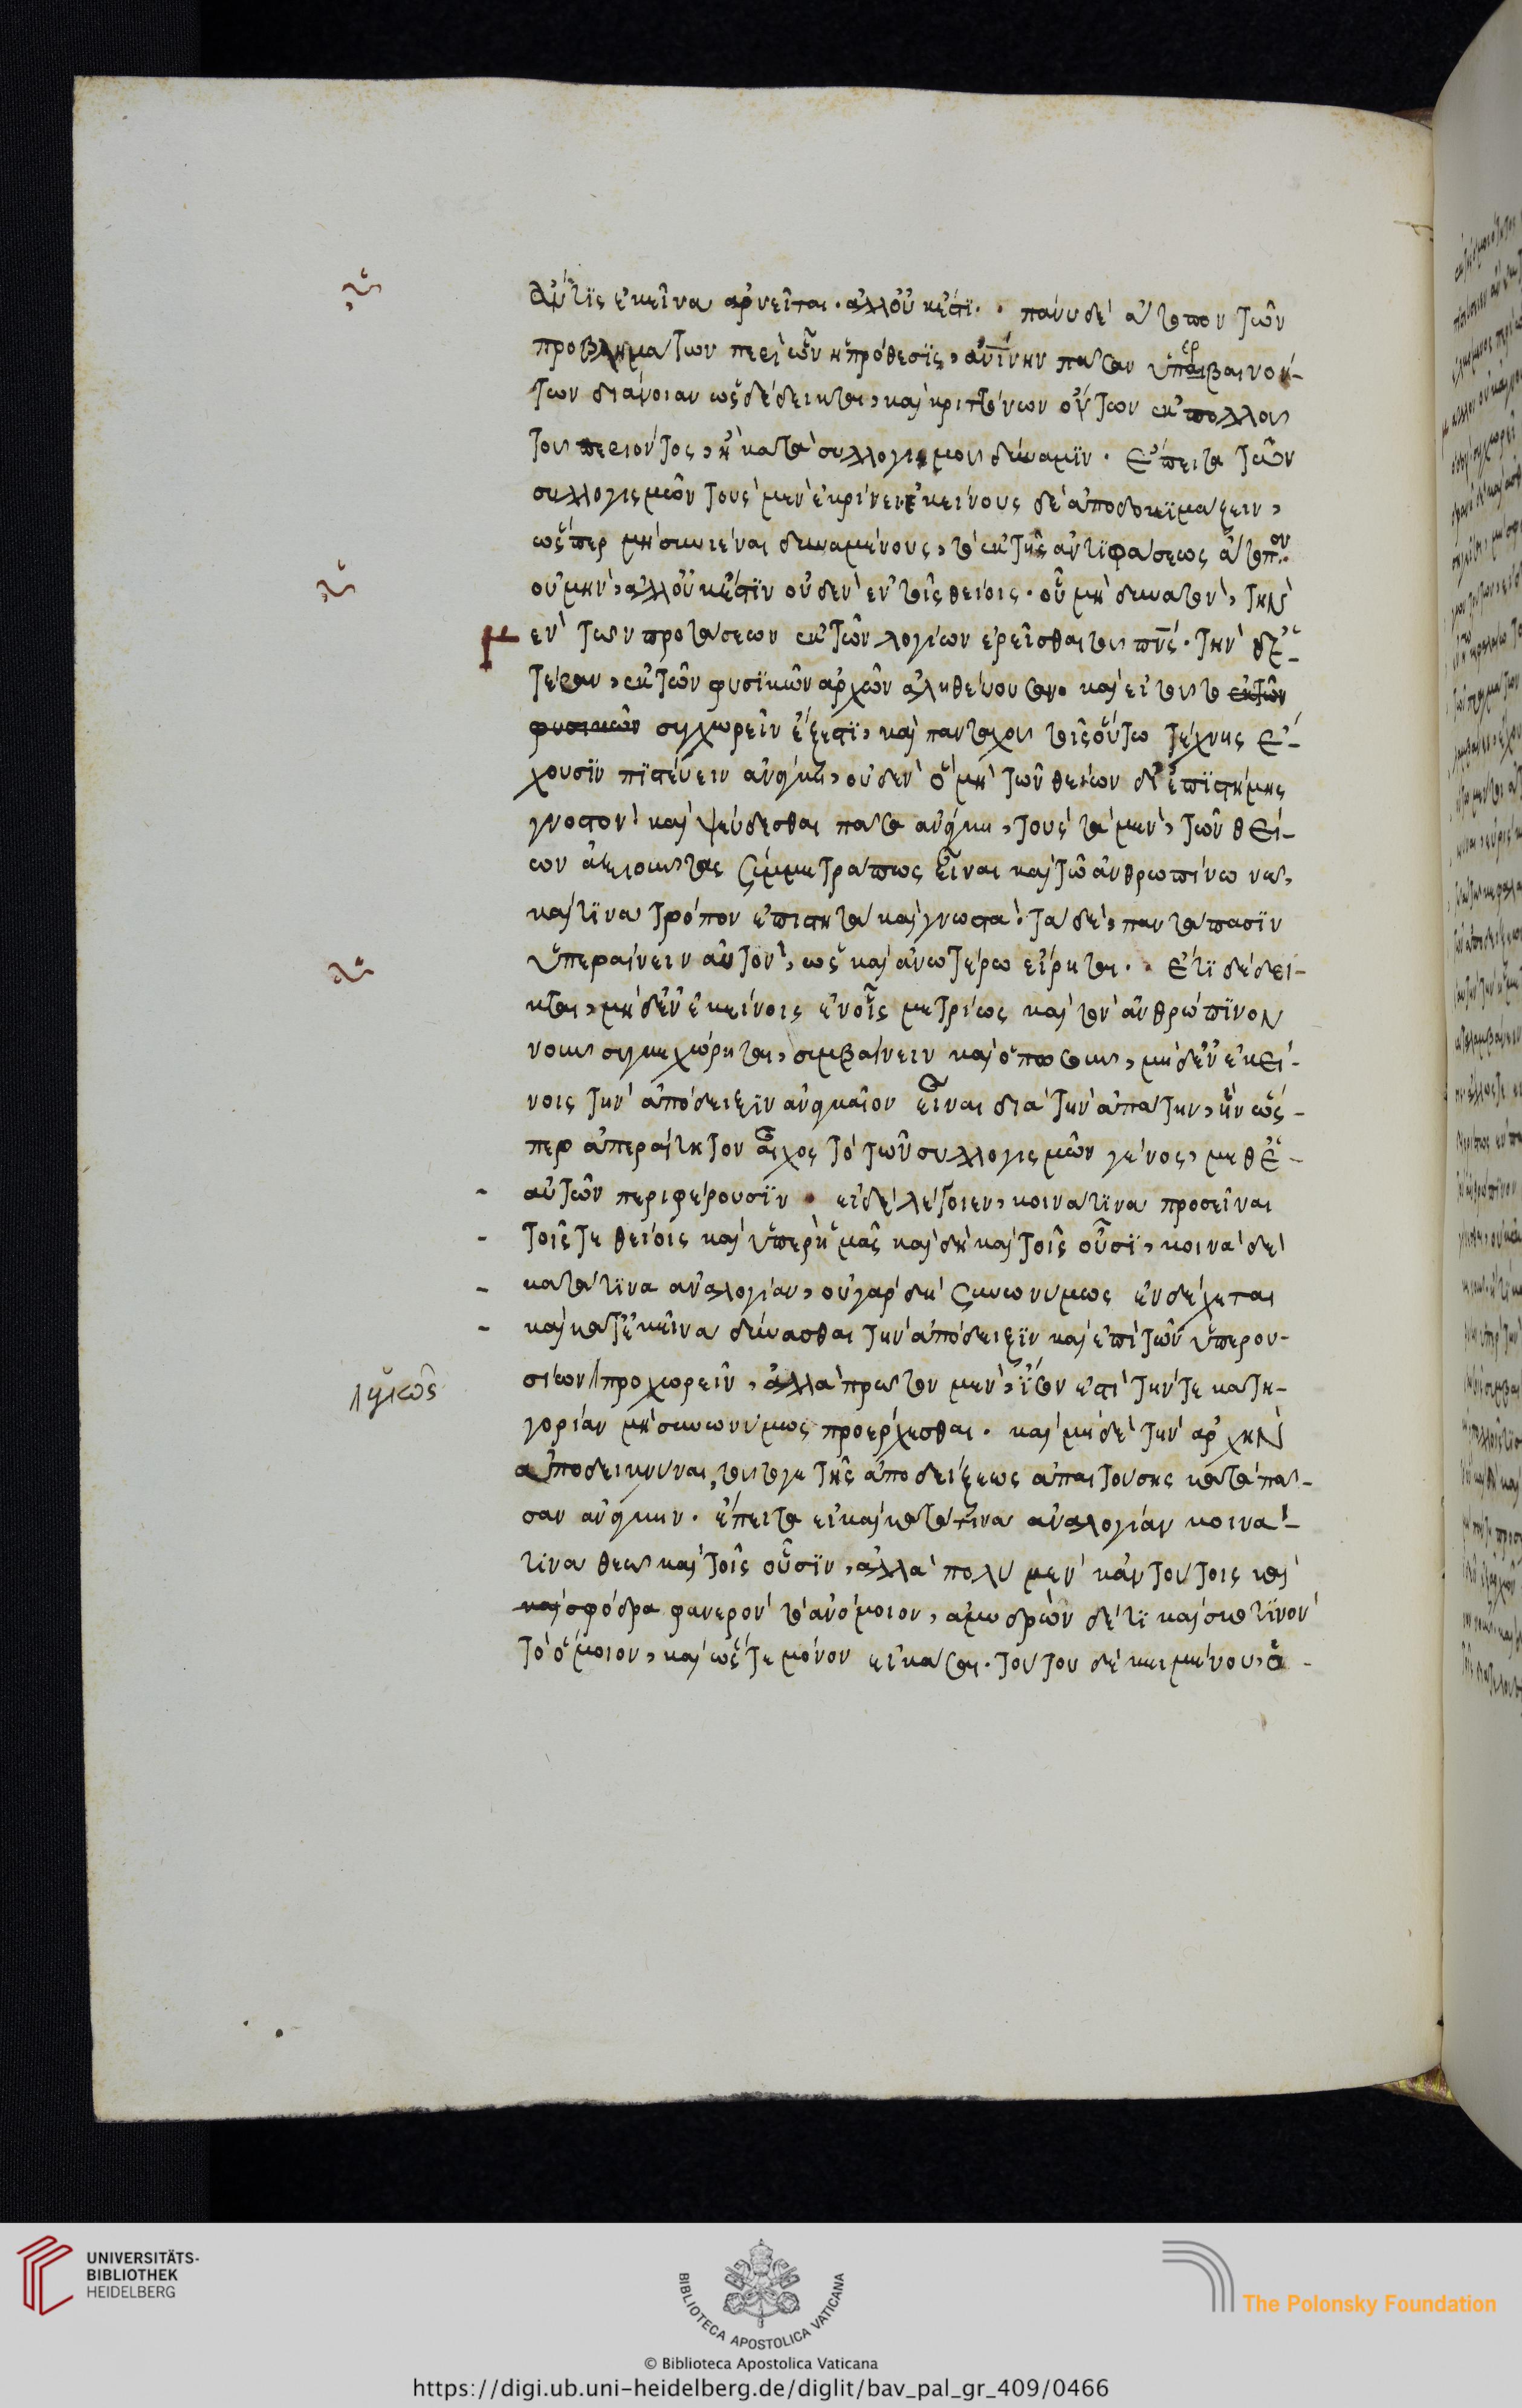 ἀν τὶς ἐκεῖνα ἀρνεῖται. ἀλλ' οὐκ ἔστι. πάνυ δὲ ἄτοπον τῶν
προβλημάτων περὶ ὧν ἡ πρόθεσις, ἀνθίνην πᾶσαν ὑπερβαινόν-
των διάνοιαν ὡς δέδεικται, καὶ κριττόνων ὄντων ἐκ πολλοῦ
τοῦ περιόντος, ἢ κατὰ συλλογισμοῦ δύναμιν. ἔπειτα τῶν
συλλογισμῶν τοὺς μὲν ἐκρίνειν ἐκείνους δὲ ἀποδοκιμάζειν,
ὥσπερ μὴ συνιέναι δυναμένους, τὸ ἐκ τῆς ἀντιφάσεως ἄτοπον.
οὐ μὴν, ἀλλ' οὐκ ἔστιν οὐδὲν ἐν τοῖς θείοις. οὗ μὴ δυνατὸν, τὴν
ἐν τῶν προτάσεων ἐκ τῶν λογίων ἐρεῖσθαι τοῦ πνς. τὴν δὲ ἑ-
τέραν, ἐκ τῶν φυσικῶν ἀρχῶν ἀληθεύουσαν. καὶ εἰ τοῦτο ἐκ τῶν
φυσικῶν συγχωρεῖν ἔξεστι, καὶ πανταχοῦ τοῖς οὕτω τέχνης ἔ-
χουσιν πιστεύειν ἀνάγκη, οὐδὲν ὃ μὴ τῶν θείων δι' ἐπιστήμης
γνοστὸν καὶ ψεύδεσθαι πᾶσα ἀνάγκη, τοὺς τὰ μὲν, τῶν θεί-
ων ἀξιοῦντας ξύμμετρα πως εἶναι καὶ τῶ ἀνθρωπίνω νῶ,
καὶ τινα τρόπον ἐπιστητὰ καὶ γνωστά. τὰ δὲ, παντάπασιν
ὑπεραίνειν αὐτὸν, ὡς καὶ ἀνωτέρω εἴρηται. ἔτι δέδει-
κται, μηδὲν ἐκείνοις ἐν οἷς μετρίως καὶ τὸν ἀνθρώπινον
νοῦν συγκεχώρηται, συμβαίνειν καὶ ὁπωσοῦν, μηδὲν ἐκεί-
νοις τὴν ἀπόδειξιν ἀναγκαῖον εἶναι διὰ τὴν ἀπάτην, ἣν ὥσ-
περ ἀπεραίτητον ἄχος τὸ τῶν συλλογισμῶν γένος, μεθ' ἑ-
αυτῶν περιφέρουσιν. εἰ δὲ λέγοιεν, κοινὰ τινα προσεῖναι
τοῖς τε θείοις καὶ ὑπὲρ ἡμᾶς καὶ δὴ καὶ τοῖς οὖσι, κοινὰ δὲ
κατά τινα ἀναλογίαν, οὐ γὰρ δὴ ξυνωνύμως ἐνδέχεται
καὶ κατ' ἐκεῖνα δύνασθαι τὴν ἀπόδειξιν καὶ ἐπὶ τῶν ὑπερου-
σίων προχωρεῖν, ἀλλὰ πρῶτον μὲν, ἴσον ἐστὶ τήν τε κατη-
γορίαν μὴ συνωνύμως προέρχεσθαι. καὶ μηδὲ τὴν ἀρχὴν
ἀποδεικνύναι, τοῦτό γε τῆς ἀποδείξεως ἀπαιτούσης κατὰ πᾶ-
σαν ἀνάγκην. ἔπειτα εἰ καὶ κατά τινα ἀναλογίαν κοινά-
τινα θεῶ καὶ τοῖς οὖσιν, ἀλλὰ πολὺ μὲν κἀν τούτοις καὶ
καὶ σφόδρα φανερὸν τὸ ἀνόμοιον, ἀμυδρῶν δέ τι καὶ σκοτινὸν
τὸ ὅμοιον, καὶ ὥστε μόνον εἰκάσαι. τούτου δὲ κειμένου, ὃ-
UNIVERSITÄTS-
BIBLIOTHEK
HEIDELBERG
BIBLIOTECA APOSTOLICA VATICANA
The Polonsky Foundation
© Biblioteca Apostolica Vaticana
https://digi.ub.uni-heidelberg.de/diglit/bav_pal_gr_409/0466